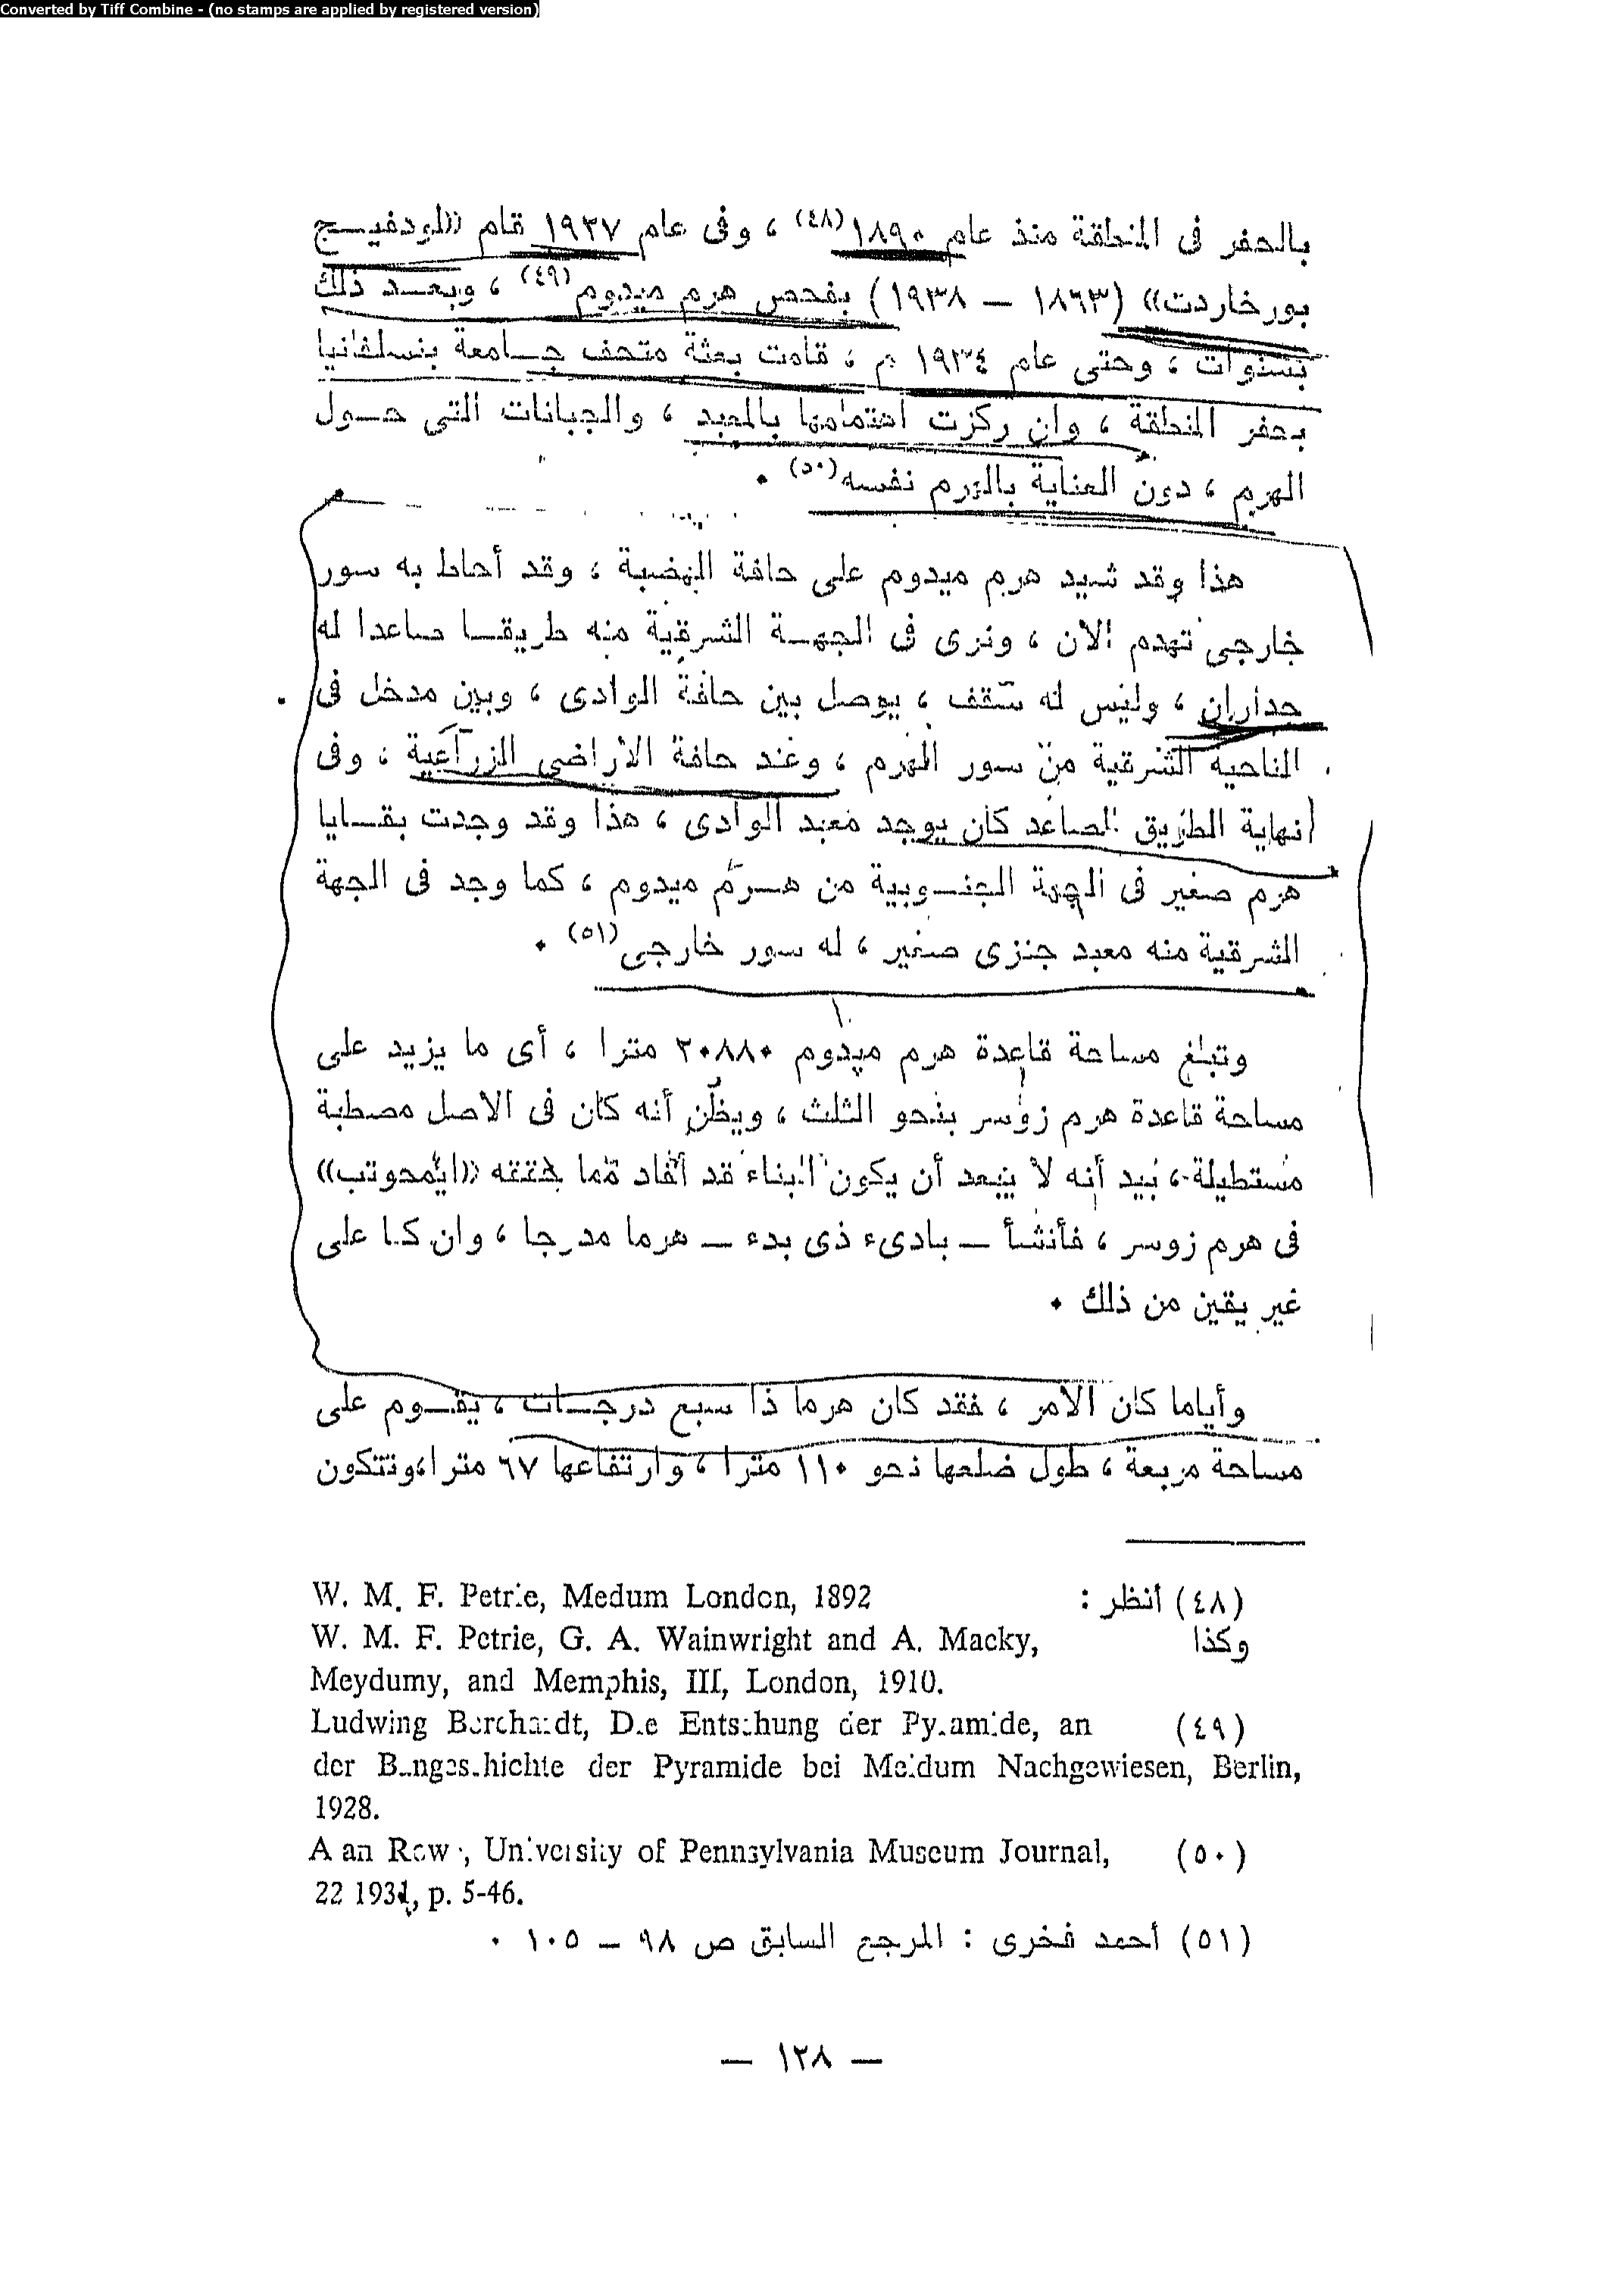 Converted by Tiff Combine - (no stamps are applied by registered version)
بالحفر فى المنطقة منذ عام ١٨٩٠(٤٨) ، وفى عام ١٩٢٧ قام «لودفيــج
بورخاردت» (١٨٦٣ — ١٩٣٨) بفحص هرم ميدوم(٤٩) ، وبعــد ذلك
بسنوات ، وحتى عام ١٩٣٤ م ، قامت بعثة متحف جــامعة بنسلفانيا
بحفر المنطقة ، وان ركزت اهتمامها بالمعبد ، والجبانات التى حــول
الهرم ، دون العناية بالهرم نفسه(٥٠) ٠
هذا وقد شيد هرم ميدوم على حافة الهضبة ، وقد أحاط به سور
خارجى تهدم الان ، ونرى فى الجهــة الشرقية منه طريقــا صاعدا له
جداران ، وليس له سقف ، يوصل بين حافة الوادى ، وبين مدخل فى
الناحية الشرقية من سور الهرم ، وعند حافة الاراضى الزراعية ، وفى
نهاية الطريق الصاعد كان يوجد معبد الوادى ، هذا وقد وجدت بقــايا
هرم صغير فى الجهة الجنــوبية من هــرم ميدوم ، كما وجد فى الجهة
الشرقية منه معبد جنزى صغير ، له سور خارجى(٥١) ٠
وتبلغ مساحة قاعدة هرم ميدوم ٢٠٨٨٠ مترا ، أى ما يزيد على
مساحة قاعدة هرم زوسر بنحو الثلث ، ويظن أنه كان فى الاصل مصطبة
مستطيلة ، بيد أنه لا يبعد أن يكون البناء قد أفاد مما حققه «ايمحوتب»
فى هرم زوسر ، فأنشأ — بادىء ذى بدء — هرما مدرجا ، وان كنا على
غير يقين من ذلك ٠
وأياما كان الامر ، فقد كان هرما ذا سبع درجــات ، يقــوم على
مساحة مربعة ، طول ضلعها نحو ١١٠ مترا ، وارتفاعها ٦٧ مترا،وتتكون
(٤٨) أنظر : W. M. F. Petrie, Medum London, 1892
وكذا W. M. F. Petrie, G. A. Wainwright and A. Macky,
Meydumy, and Memphis, III, London, 1910.
(٤٩) Ludwing Borchardt, Die Entstehung der Pyramide, an
der Baugeschichte der Pyramide bei Meidum Nachgewiesen, Berlin,
1928.
(٥٠) Alan Row, University of Pennsylvania Museum Journal,
22 1931, p. 5-46.
(٥١) أحمد فخرى : المرجع السابق ص ٩٨ — ١٠٥ ٠
— ١٢٨ —